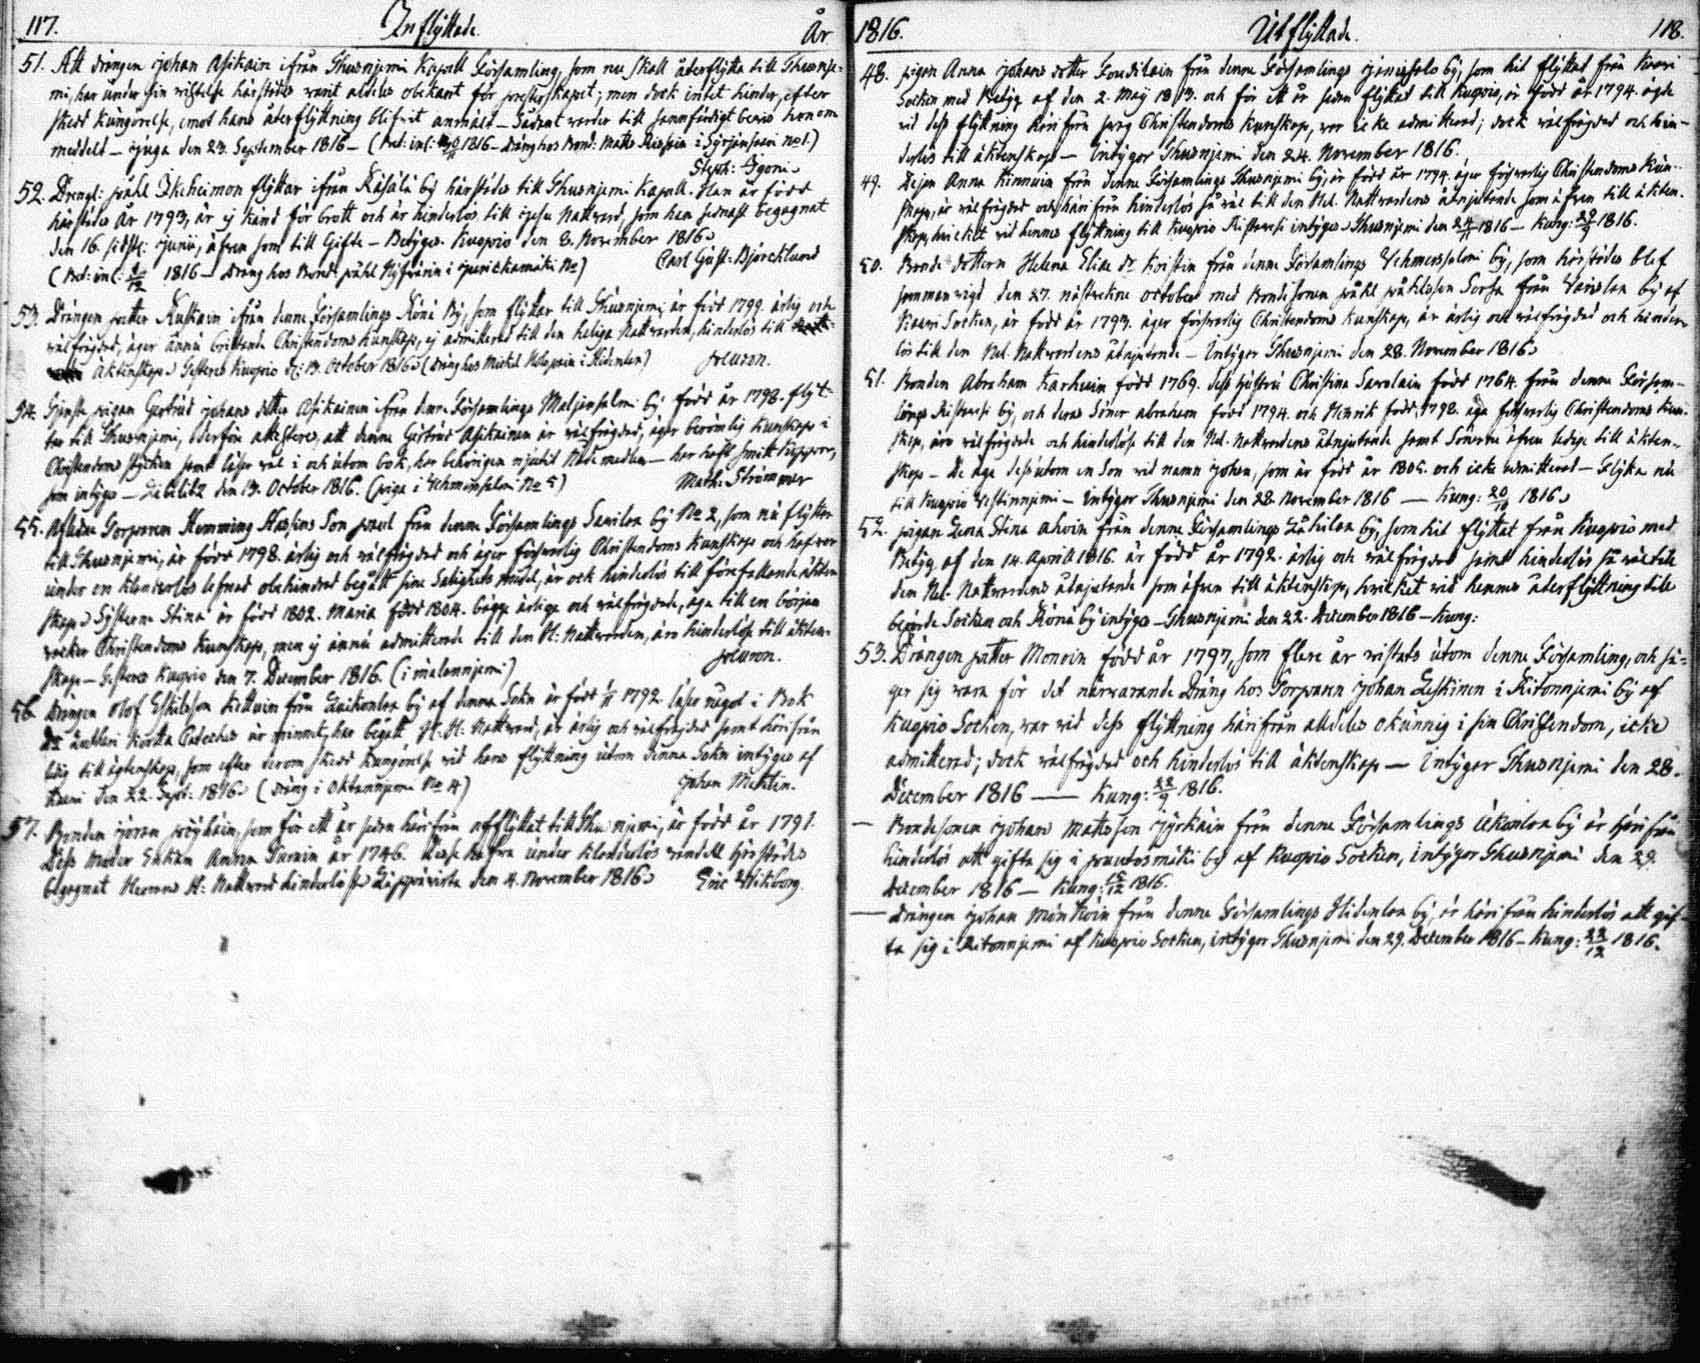 117. Inflyttade. År
51. Att drängen Johan Asikain ifrån Thusnjemi Kapell Församling, som nu skall återflytta till Thusnje-
mi, har under sin vistelse härstädes varit aldeles obekant för presterskapet; men dock intet hinder, efter
skedd kungörelse, emot hans återflyttning blifvit anmält — Sådant warder till sannfärdigt bevis honom
meddelt — Juga den 23 September 1816 — (Bet: inl: 1816 — dräng hos Bond: Matts no 1.)
Steph: Igoni
52. Dreng: påhl Ikäheimon flyttar ifrån Räsälä by härstädes till Thusnjemi Kapell. Han är född
härstädes År 1793, är ej känd för brott och är hinderlös till Nattvard, som han sednast begagnat
den 16. sidstl: Junii, äfven som till Gifte — Betygas Kuopio den 8. November 1816
(Bet: inl: 1816 — dräng hos Bond: påhl i No ) Carl Gust: Björcklund
53. Drängen petter Ruskain ifrån denne Församlings Köné By, som flyttar till Thusnjemi, är född 1799. ärlig och
välfrägdad, äger ännu bristande Christendoms kunskap, ej admitterad till den heliga Nattvarden, hinderlös till
Äktenskap Testeras Kuopio d: 13. October 1816 (dräng hos Mickel i Hidenlax) Poluson.
54. Gensta pigan Gertrud Johans dotter Asikainen ifrån denne Församlings Maljensalmi by född år 1798. flyt-
tar till Thusnjemi, derföre attesteras, att denne Gertrud Asikainen är välfrägdad, äger berömlig kunskap i
Christendoms stycken samt läser väl i och utom bok, har behörigen njutit Nåde medlen — har haft Smittkoppor,
som intygas — Libelitz den 13. October 1816. (piga i Vehmersalmi No 5) Math: Strömmer
55. Afledne Torparen Hemming Son paul från denne Församlings Sawilax by No 2, som nu flyttar
till Thusnjemi, är född 1798. ärlig och välfrägdad och äger försvarlig Christendoms kunskap och hafver
under en klanderlös lefnad obehindrad begått sine Salighets medel, är ock hinderlös till förefallande äkten-
skap Systrarne Stina är född 1802. Maria född 1804. bägge ärliga och välfrägdade, äga till en början
vacker Christendoms kunskap, men ej ännu admitterade till den H: Nattvarden, äro hinderlösa till äkten-
skap — Testeras Kuopio den 7. December 1816. (i malonnjemi) Poluson.
56. Drängen Olof Eskilsson Kettuin från by af denna Sokn är född 1792. läser något i Bok
korta Cateches ur minnet, har begått H: H: Nattvard, är ärlig och välfrägdad samt härifrån
ledig till ägtenskap, som efter derom skedd kungörelse vid hans flyttning utom denna Sokn intygas af
Kavi den 22. Sept: 1816 (dräng i No 4) Johan Mechlin.
57. Bonden Göran som för ett år sedan härifrån afflyttat till Thusnjemi, är född år 1791.
Dess moder Enkan Anna Turuin år 1746. Desse hafva under klanderlös vandell härstädes
begagnat Herrans H: Nattvard hinderlöse Lapparista den 4. November 1816 Eric Wikborg.
1816. Utflyttade. 118.
48. pigan Anna Johans dotter från denne Församlings by, som hit flyttat från Kavi
Socken med Betyg af den 2. Maij 1813. och för ett år sedan flyttat till Kuopio, är född år 1794. ägde
vid dess flyttning härifrån svag Christendoms kunskap, var icke admitterad; dock välfrägdad och hin-
derlös till äktenskap — Intygar Thusnjemi den 24. November 1816.
49. Dejan Anna Kinnuin från denne Församlings Thusnjemi by, är född år 1794. äger försvarlig Christendoms kun-
skap, är välfrägdad och härifrån hinderlös så väl till den Hel. Nattvardens åtnjutande som äfven till äkten-
skap, hvilket vid hennes flyttning till Kuopio Ristavesi intygas Thusnjemi den 24/11 1816 — Kung: 1816.
50. Bonde dottern Helena Elias dr. Koistin från denne Församlings Vehmersalmi by, som härstädes blef
sammanvigd den 27. nästvekne october med Bonde sonen påhl påhlsson Sorsa från by af
Kaavi Socken, är född år 1793. äger försvarlig Christendoms kunskap, är ärlig och välfrägdad och hinder-
lös till den Hel. Nattvardens åtnjutande — Intygar Thusnjemi den 28. November 1816
51. Bonden Abraham Karhuin född 1769. dess hustru Christina Savolain född 1764. från denne Försam-
lings Ristavesi by, och deras Söner abraham född 1794. och Henrik född 1798. äga försvarlig Christendoms kun-
skap, äro välfrägdade och hinderlöse till den Hel. Nattvardens åtnjutande samt Sönerne äfven ledige till äkten-
skap — De äga dessutom en Son vid namn Johan, som är född år 1805. och icke admitterad — Flytta nu
till Kuopio — Intygar Thusnjemi den 28. November 1816 — Kung: 20/10 1816
52. pigan Lena Stina ahoin från denne Församlings by, som hit flyttat från Kuopio med
Betyg af den 14. April 1816. är född år 1792. ärlig och välfrägdad samt hinderlös så väl till
den Hel. Nattvardens åtnjutande som äfven till äktenskap, hvilket vid hennes återflyttning till
berörde Socken och Könä by intygas — Thusnjemi den 22. December 1816 — Kung:
53. Drängen petter Monoin född år 1797, som flere år vistats utom denne Församling, och sä-
ger sig vara för det närvarande Dräng hos Torparen Johan Leskinen i Ritonnjemi by af
Kuopio Socken, var vid dess flyttning härifrån alldeles okunnig i sin Christendom, icke
admitterad; dock välfrägdad och hinderlös till äktenskap — Intygar Thusnjemi den 28.
December 1816 — Kung: 22/9 1816.
— Bondesonen Johan Mattsson Jyrkäin från denne Församlings Ukonlax by är härifrån
hinderlös att gifta sig i by af Kuopio Socken, Intygar Thusnjemi den 29.
December 1816 — Kung: 15/12 1816.
— Drängen Johan Mönköin från denne Församlings Hidenlax by, är härifrån hinderlös att gif-
ta sig i Ritonnjemi af Kuopio Socken, intygar Thusnjemi den 29. December 1816 — Kung: 22/12 1816.